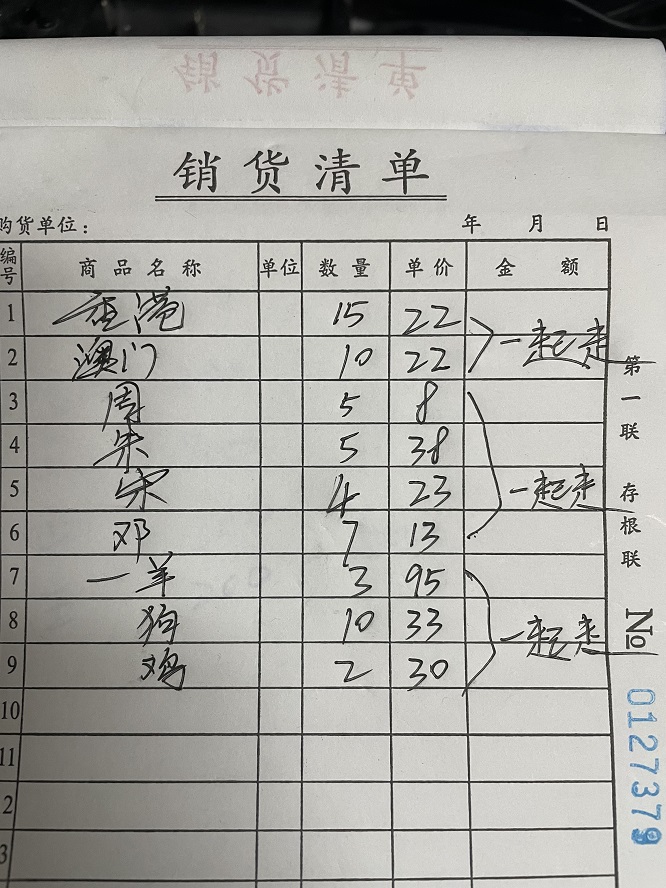 销货清单
购货单位： 年 月 日
编号 商品名称 单位 数量 单价 金额
1 香港 15 22
一起走
2 澳门 10 22
3 周 5 8
4 朱 5 38
5 宋 4 23 一起走
6 邓 7 13
7 一羊 3 95
8 狗 10 33 一起走
9 鸡 2 30
10
11
2
3
第一联 存根联
No 0127379